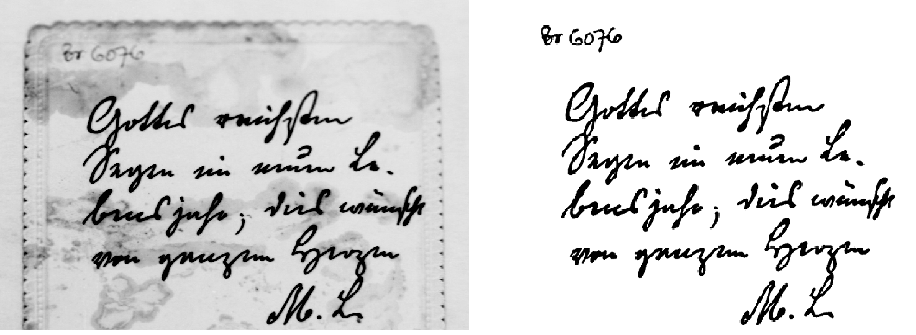 Br 6076
Gottes reichsten
Segen im neuen Le-
bensjahr, dies wünscht
von ganzem Herzen
M. L.
Br 6076
Gottes reichsten
Segen im neuen Le-
bensjahr, dies wünscht
von ganzem Herzen
M. L.